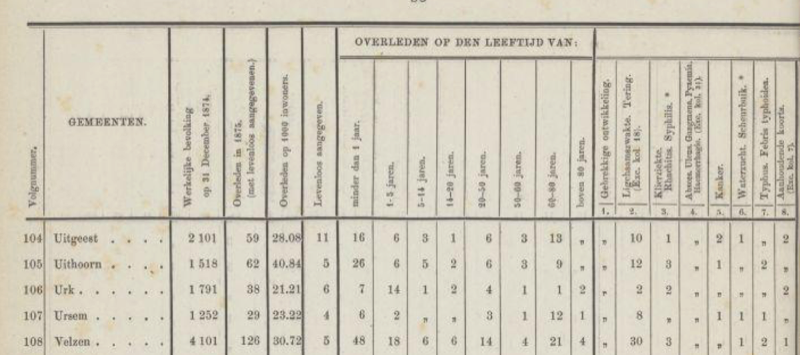 OVERLEDEN OP DEN LEEFTIJD VAN:
Volgnummer. GEMEENTEN. Werkelijke bevolking op 31 December 1874. Overleden in 1875. (met levenloos aangegevenen.) Overleden op 1000 inwoners. Levenloos aangegeven. minder dan 1 jaar. 1-5 jaren. 5-14 jaren. 14-20 jaren. 20-50 jaren. 50-60 jaren. 60-80 jaren. boven 80 jaren. Gebrekkige ontwikkeling. Ligchaamszwakte. Tering. (Exc. kol. 18). Klierziekte. Rhachitus. Syphilis. * Absces. Ulcus. Gangraena. Pyaemie. Haemorrhagie. (Exc. kol. 31). Kanker. Waterzucht. Scheurbuik. * Typhus. Febris typhoidea. Aanhoudende koorts. (Exc. kol. 7).
1. 2. 3. 4. 5. 6. 7. 8.
104 Uitgeest . . . . 2 101 59 28.08 11 16 6 3 1 6 3 13 „ „ 10 1 „ 2 1 „ 2
105 Uithoorn . . . . 1 518 62 40.84 5 26 6 5 2 6 3 9 „ „ 12 3 „ 1 „ 2 „
106 Urk . . . . . . 1 791 38 21.21 6 7 14 1 2 4 1 1 2 „ 2 2 „ „ „ „ 2
107 Ursem . . . . . 1 252 29 23.22 4 6 2 „ „ 3 1 12 1 „ 8 „ „ 1 1 1 „
108 Velzen . . . . . 4 101 126 30.72 5 48 18 6 6 14 4 21 4 „ 30 3 „ „ 1 2 1